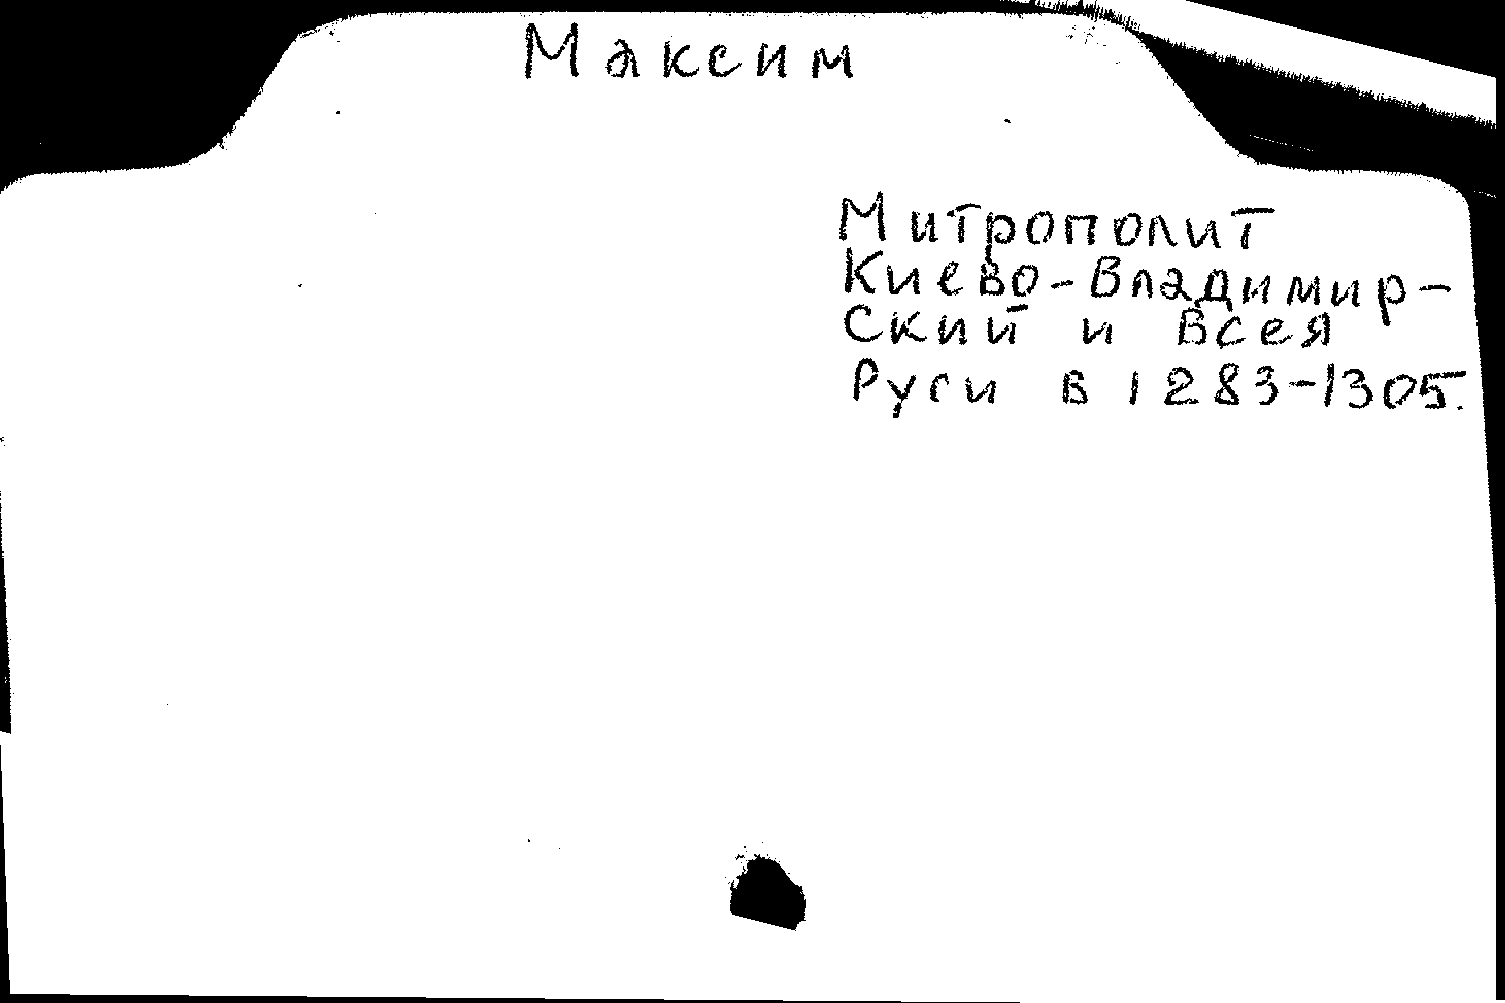 Максим
Митрополит
Киево-Владимир-
ский и всея
Руси в 1283-1305.